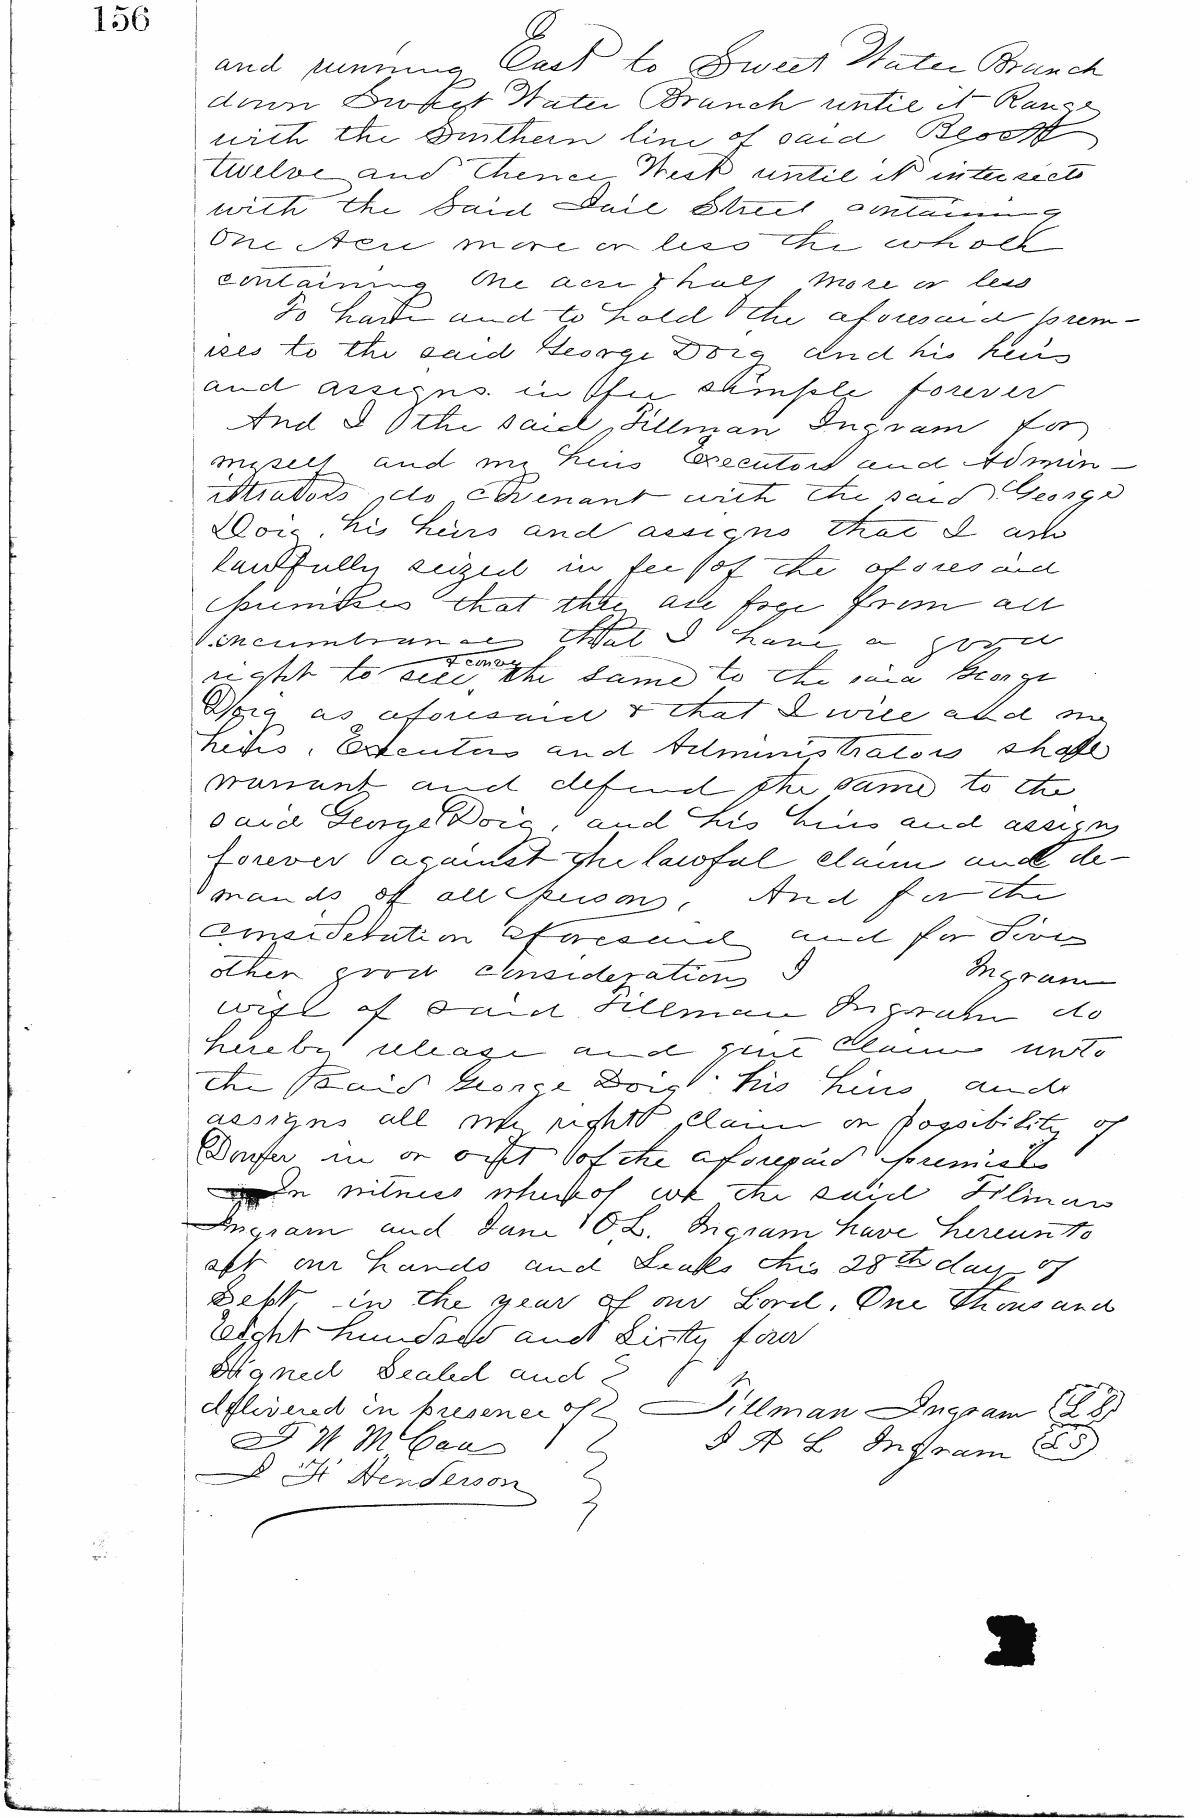 156
and running East to Sweet Water Branch
down Sweet Water Branch until it Range
with the Southern line of said Block
twelve and thence West until it intersects
with the Said Jail Street containing
One Acre more or less the whole
containing One acre & half more or less
To have and to hold the aforesaid prem-
ises to the said George Doig and his heirs
and assigns in fee simple forever
And I the said Tillman Ingram for
myself and my heirs Executors and Admin-
istrators do covenant with the said George
Doig, his heirs and assigns that I am
lawfully seized in fee of the aforesaid
premises that they are free from all
incumbrances that I have a good
right to sell & convey the same to the said George
Doig as aforesaid & that I will and my
heirs, Executors and Administrators shall
warrant and defend the same to the
said George Doig, and his heirs and assigns
forever against the lawful claim and de-
mands of all persons, And for the
consideration aforesaid and for divers
other good considerations I Ingram
wife of said Tillman Ingram do
hereby release and quit Claim unto
the said George Doig his heirs and
assigns all my right claim or possibility of
Dower in or out of the aforesaid premises
In witness whereof we the said Tilman
Ingram and Jane O.L. Ingram have hereunto
set our hands and Seals this 28th day of
Sept, in the year of our Lord, One Thousand
Eight hundred and Sixty four
Signed Sealed and
delivered in presence of Tillman Ingram (LS)
T W McCaa J A L Ingram (LS)
J H Henderson